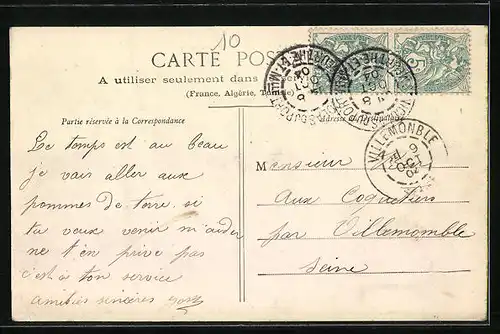 10
CARTE POS
A utiliser seulement dans
(France, Algérie, Tunisie
Partie réservée à la Correspondance
Adresse du Destinataire
VILLEMOMBLE
Le temps est au beau
je vais aller aux
pommes de terre. si
tu veux venir m'aider
ne t'en prive pas
c'est à ton service
amitiés sincères
Monsieur
aux Coquetiers
par Villemomble
Seine